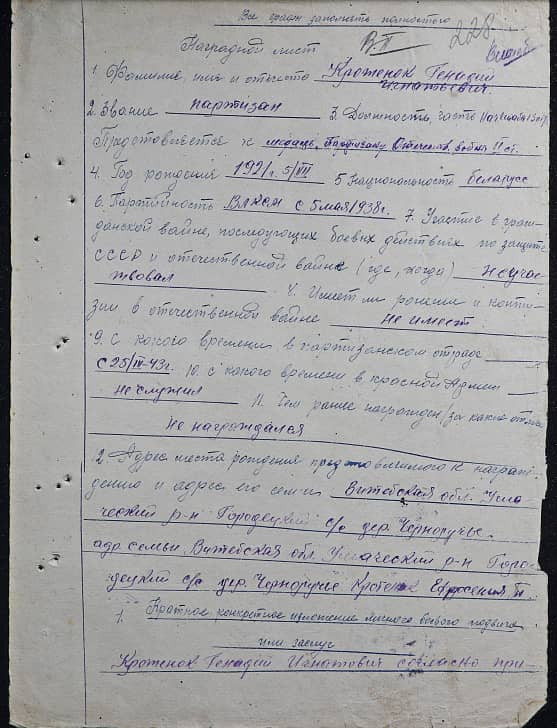 Все графы заполнять полностью
ВП 228
Наградной лист
1. Фамилия, имя и отчество Кротенок Генадий
Игнатьевич.
2. Звание партизан 3. Должность, часть
Представляется к медаль „Партизану Отечествен. войны II ст.
4. Год рождения 1921 г. 5/VII 5 Национальность беларусс
6. Партийность ВЛКСМ с 5 мая 1938 г. 7. Участие в граж-
данской войне, последующих боевых действиях по защите
СССР и отечественной войне (где, когда) не учас-
твовал
Имеет ли ранения и конту-
зии в отечественной войне не имеет.
9. С какого времени в партизанском отряде
с 25/IV-43 г. 10. с какого времени в красной Армии
не служил 11. Чем ранее награжден /за какие отлич
Не награждался
2. Адрес места рождения представляемого к награж-
дению и адрес его семьи Витебская обл. Уша-
ческий р-н Городецкий с/с дер. Черноручье.
адр семьи Витебская обл. Ушаческий р-н Горо-
децкий с/с дер. Черноручье Кротенок Ефросения П.
1. Краткое конкретное изложение личного боевого подвига
или заслуг
Кротенок Генадий Игнатович согласно при-